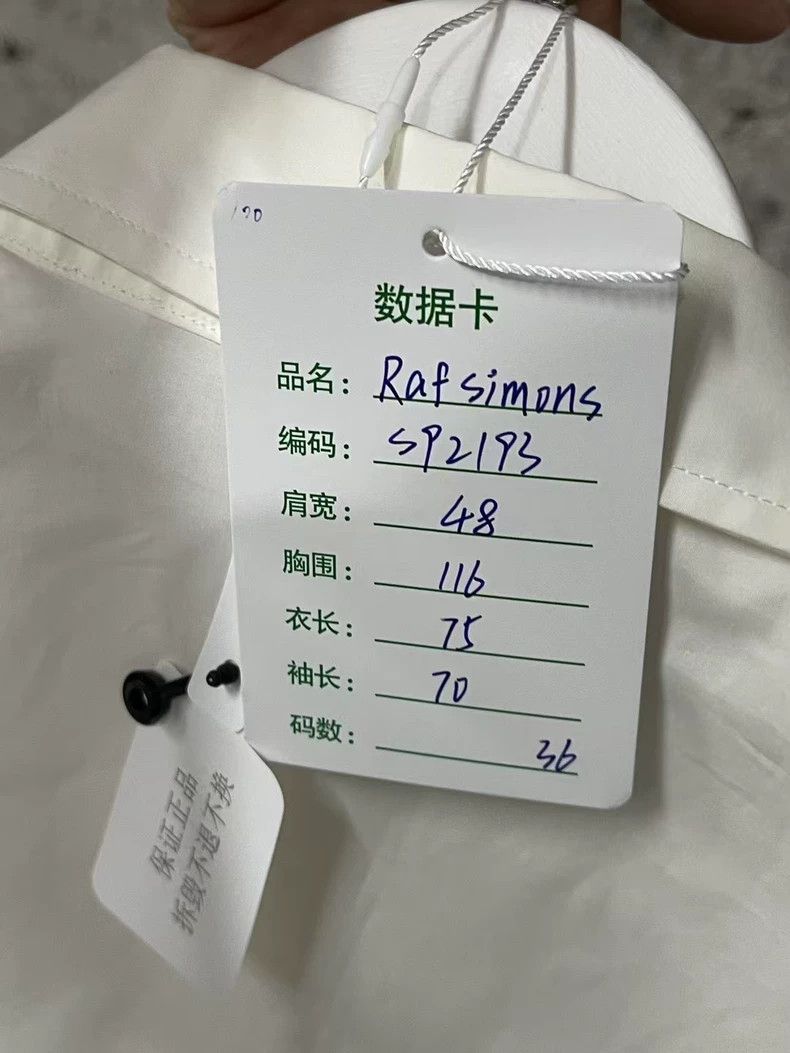 170
数据卡
品名: Raf simons
编码: SP2193
肩宽: 48
胸围: 116
衣长: 75
袖长: 70
码数: 36
保证正品
拆毁不退不换